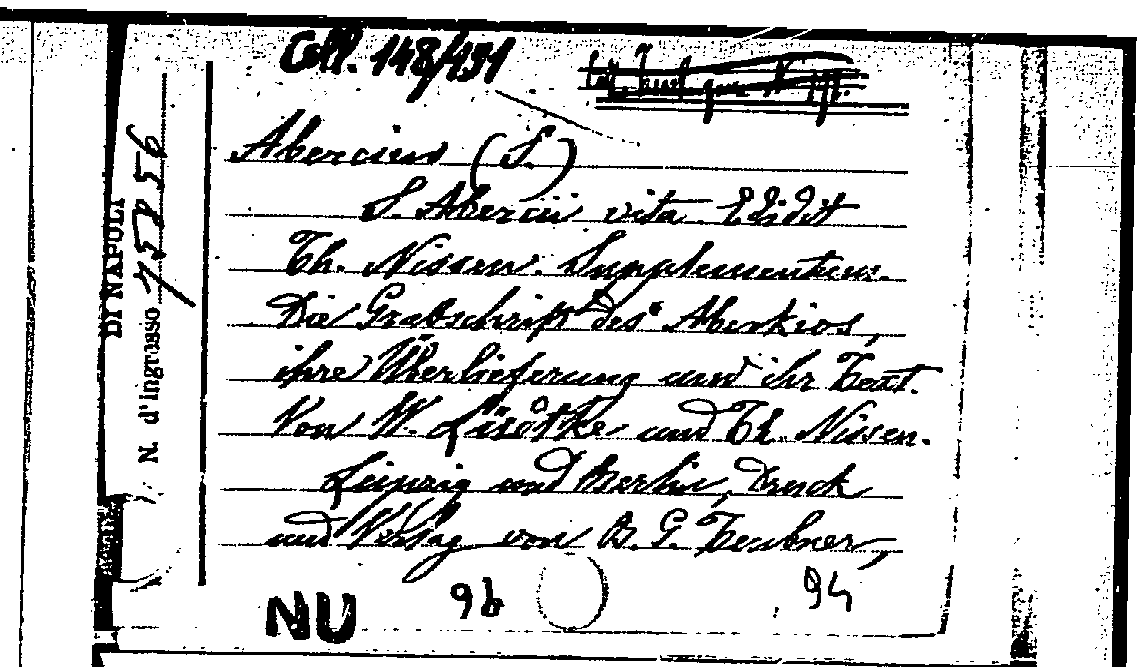 Coll. 148/131
Abercius (S.)
S. Abercii vita Edidit
Th. Nissen. Supplementum.
Die Grabschrift des Aberkios,
ihre Überlieferung und ihr Text.
Von W. Lüdtke und Th. Nissen.
Leipzig und Berlin, Druck
und Verlag von B. G. Teubner,
NU 9b 94
DI NAPOLI
N. d'ingresso